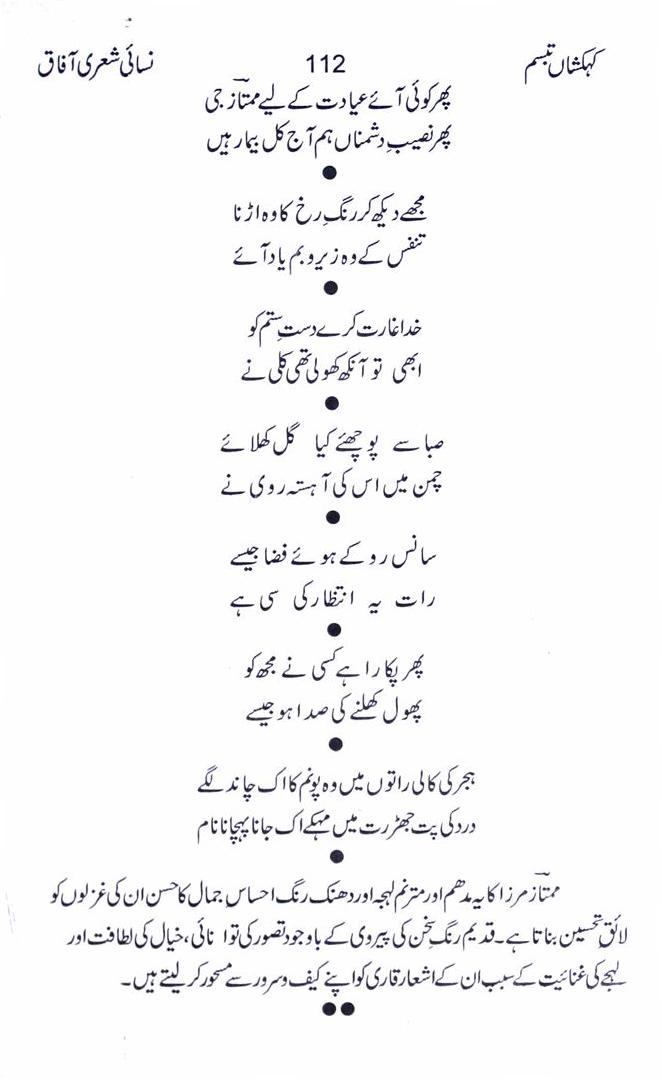 کہکشاں تبسم 112 نسائی شعری آفاق
پھر کوئی آئے عیادت کے لیے ممتاز جی
پھر نصیبِ دشمناں ہم آج کل بیمار ہیں
●
مجھے دیکھ کر رنگِ رخ کا وہ اڑنا
تنفس کے وہ زیر و بم یاد آئے
●
خدا غارت کرے دستِ ستم کو
ابھی تو آنکھ کھولی تھی کلی نے
●
صبا سے پوچھئے کیا گل کھلائے
چمن میں اس کی آہستہ روی نے
●
سانس روکے ہوئے فضا جیسے
رات یہ انتظار کی سی ہے
●
پھر پکارا ہے کسی نے مجھ کو
پھول کھلنے کی صدا ہو جیسے
●
ہجر کی کالی راتوں میں وہ پونم کا اک چاند لگے
درد کی پت جھڑ رت میں مہکے اک جانا پہچانا نام
●
ممتاز مرزا کا یہ مدھم اور مترنم لہجہ اور دھنک رنگ احساس جمال کا حسن ان کی غزلوں کو
لائقِ تحسین بناتا ہے۔ قدیم رنگِ سخن کی پیروی کے باوجود تصور کی توانائی، خیال کی لطافت اور
لہجے کی غنائیت کے سبب ان کے اشعار قاری کو اپنے کیف و سرور سے مسحور کر لیتے ہیں۔
●●